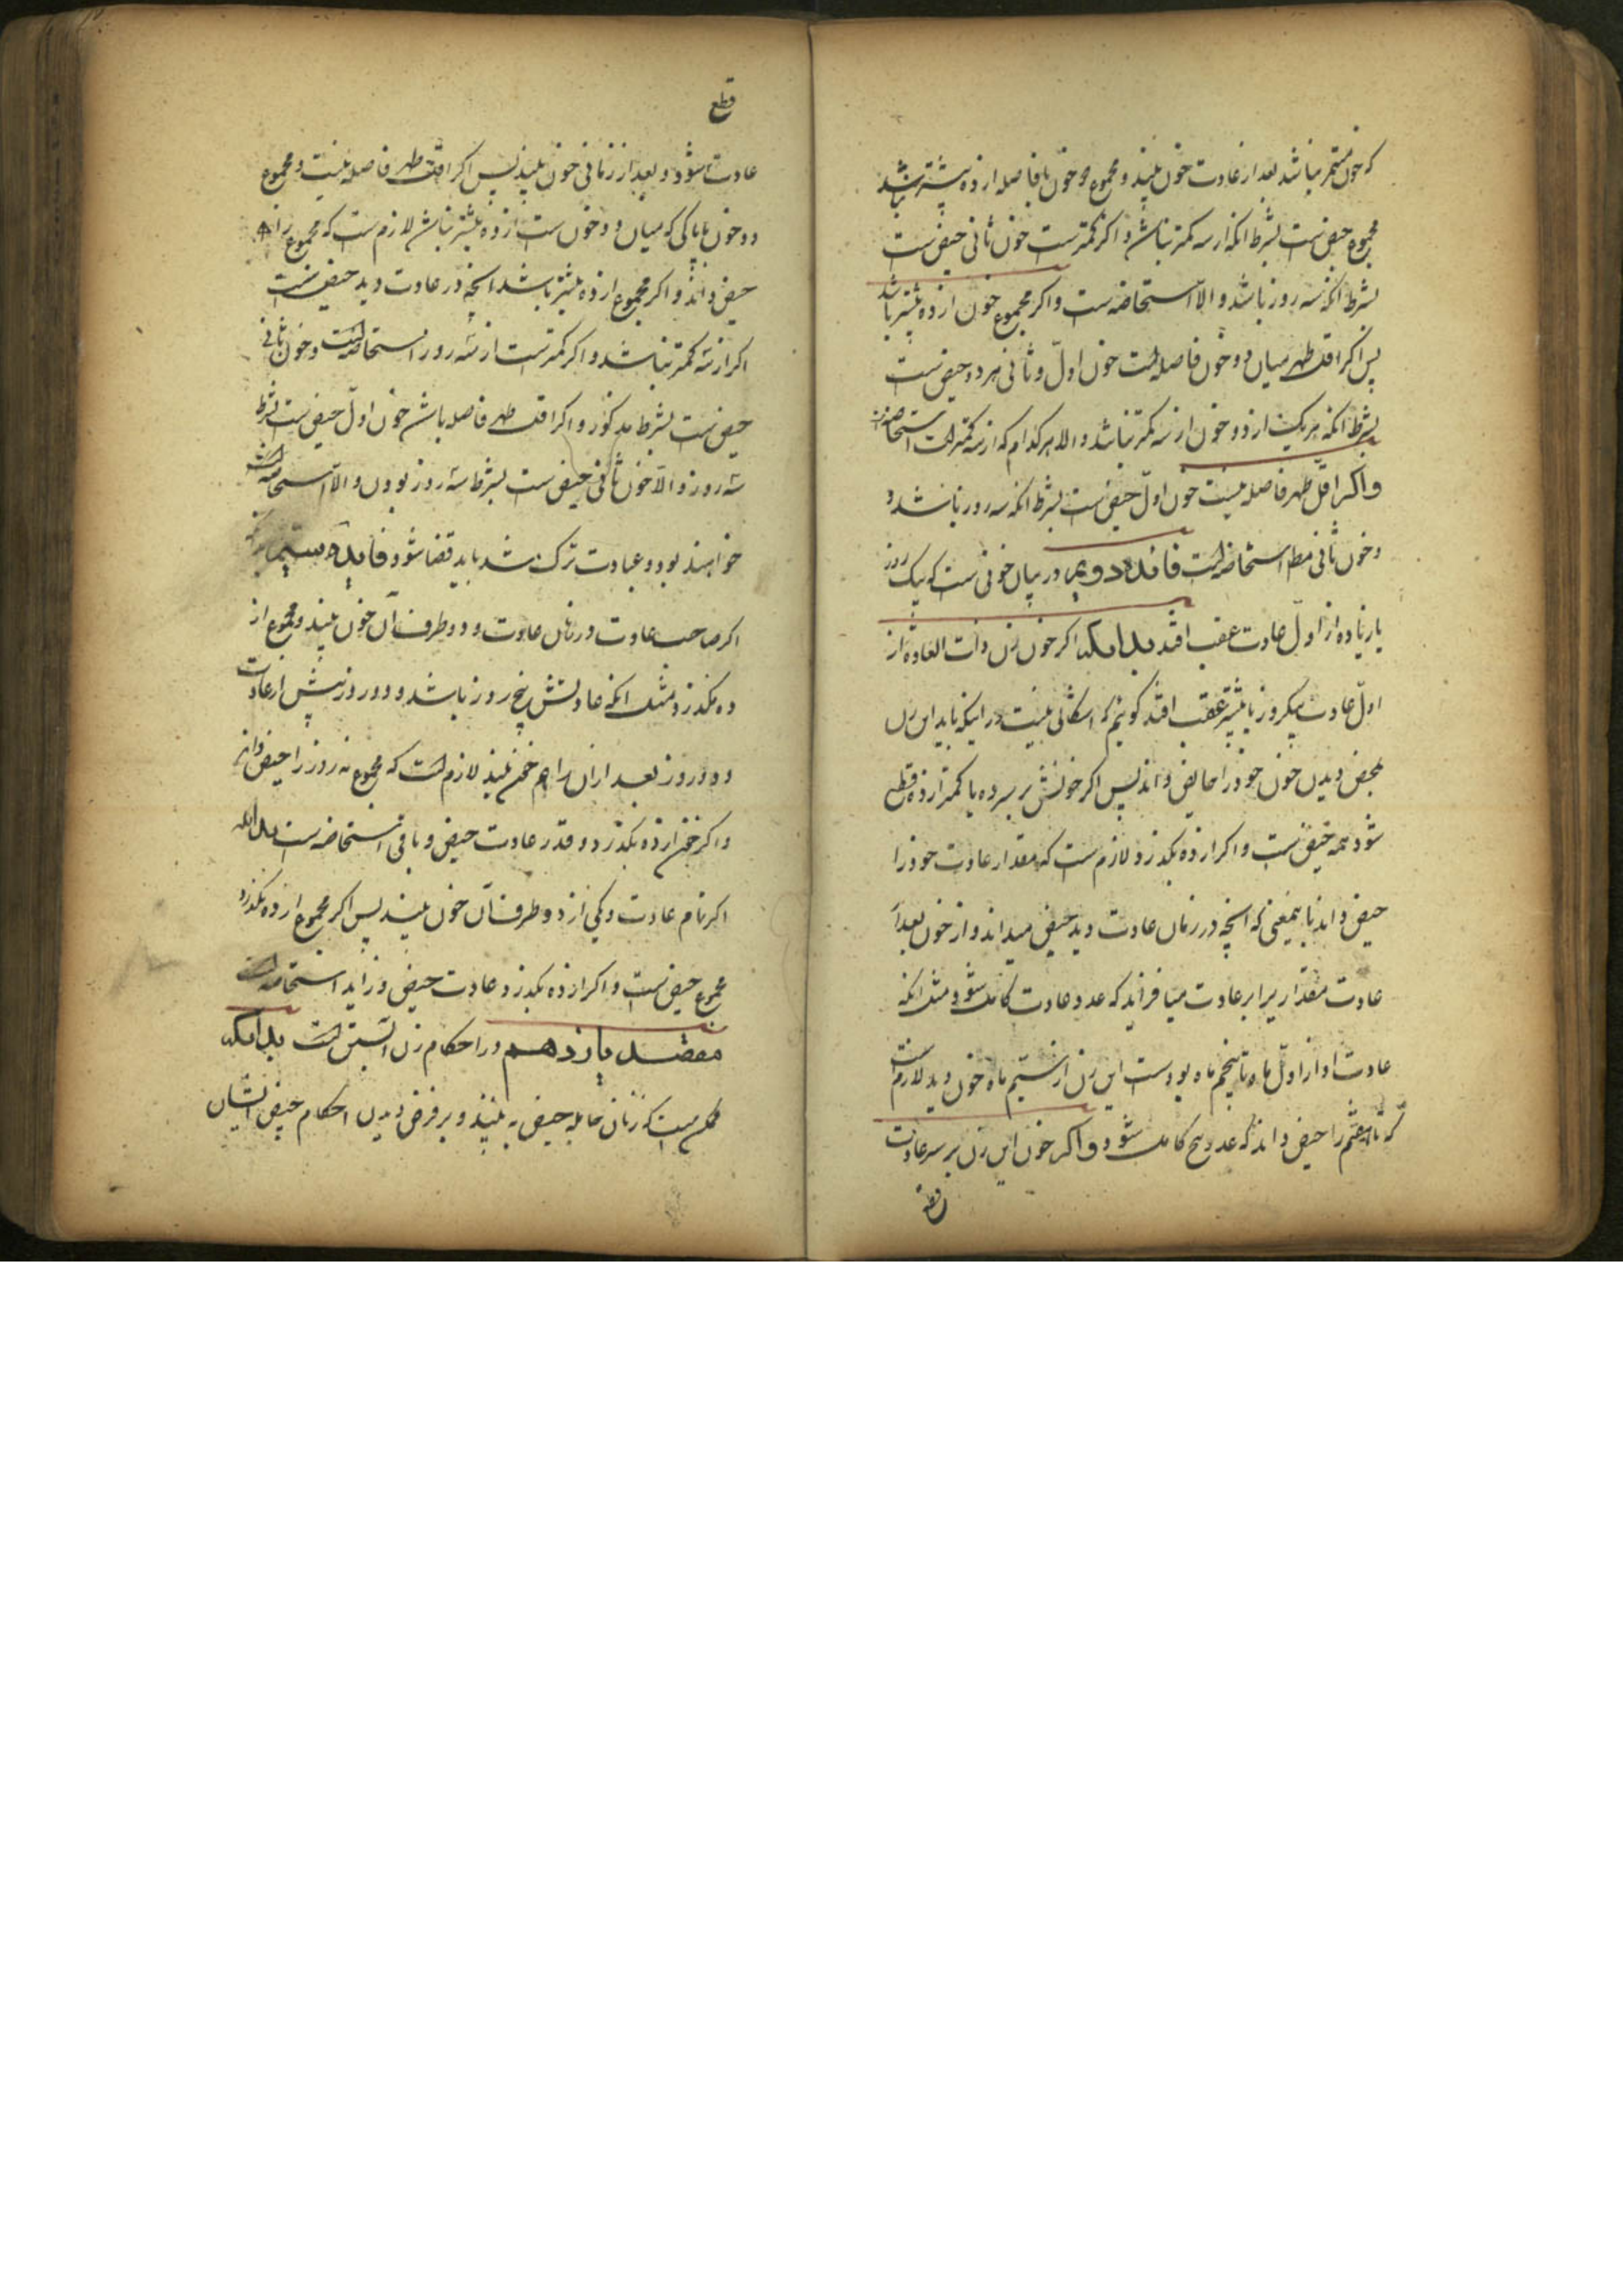 که خون مستمر نباشد بعد از عادت خون بیند و مجموع دو خون با فاصله از ده بیشتر نباشد
مجموع حیض است بشرط انکه از سه کمتر نباشد و اکر کمتر است خون ثانی حیض است
بشرط انکه سه روز باشد و الا استحاضه است و اکر مجموع خون از ده بیشتر باشد
پس اکر اقل طهر میان دو خون فاصله است خون اول و ثانی هر دو حیض است
بشرط انکه هر یک از دو خون از سه کمتر نباشد و الا هر کدام که از سه کمتر است استحاضه است
واکر اقل طهر فاصله نیست خون اول حیض است بشرط انکه سه روز باشد و
و خون ثانی مطلقا استحاضه است فائده دویم در بیان خونی است که یک روز
یا زیاده از اول عادت عقب افتد بدانکه اکر خون زن ذات العاده از
اول عادت یکروز یا بیشتر عقب افتد کوئیم که اشکالی نیست در اینکه باید این زن
بمحض دیدن خون خود را حایض داند پس اکر خونش بر سر ده یا کمتر از ده قطع
شود همه حیض است و اکر از ده بکذرد لازم است که مقدار عادت خود را
حیض داند باینمعنی که انچه در زمان عادت دید حیض میداند و از خون بعد از
عادت مقداری برابر عادت میافزاید که عدد عادت کامل شود مثل انکه
عادت او از اول ماه تا پنجم ماه بوده است این زن از سیم ماه خون دید لازم است
که تا هفتم را حیض داند که عدد پنج کامل شود و اکر خون این زن بر سر عادت
قطع
قطع
عادت شود و بعد از زمانی خون بیند پس اکر اقل طهر فاصله نیست و مجموع
دو خون با پاکی که میان دو خون است از ده بیشتر نباشد لازم است که مجموع را
حیض داند و اکر مجموع از ده بیشتر باشد انچه در عادت دید حیض است
اکر از سه کمتر نباشد و اکر کمتر است از سه روز استحاضه است و خون ثانی
حیض است بشرط مذکور و اکر اقل طهر فاصله باشد خون اول حیض است بشرط
سه روز و الا خون ثانی حیض است بشرط سه روز بودن و الا استحاضه
خواهند بود و عبادت ترک شده باید قضا شود فایده سیم
اکر صاحب عادت در زمان عادت و دو طرف آن خون بیند و مجموع از
ده نکذرد مثل انکه عادتش پنج روز باشد و دو روز پیش از عادت
و دو روز بعد از ان را هم خون بیند لازم است که مجموع نه روز را حیض داند
و اکر خون از ده بکذرد و قدر عادت حیض و باقی استحاضه است بدانکه
اکر تمام عادت و یکی از دو طرف آن خون بیند پس اکر مجموع از ده نکذرد
مجموع حیض است و اکر از ده بکذرد عادت حیض و زاید استحاضه است
مقصد یازدهم در احکام زن آبستن است بدانکه
ممکن است که زنان حامله حیض به بینند و بر فرض دیدن احکام حیض ایشان